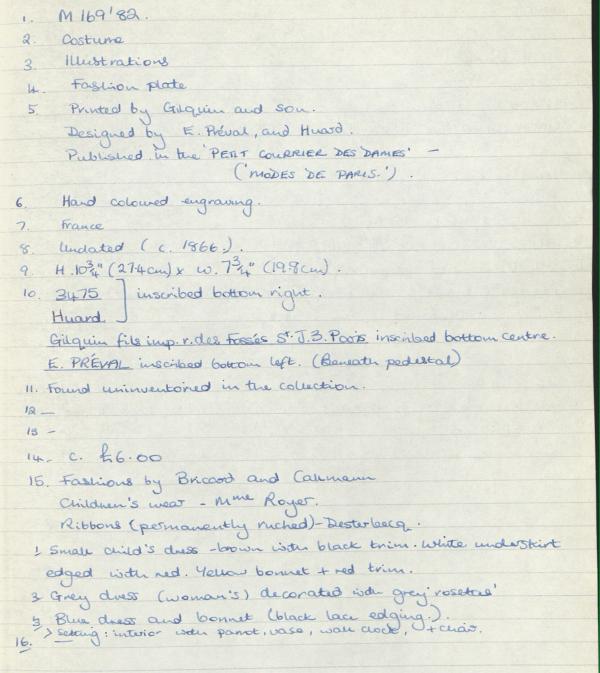 1. M 169'82.
2. Costume
3. Illustrations
4. Fashion plate
5. Printed by Gilquin and son.
Designed by E. Préval, and Huard.
Published in the 'PETIT COURRIER DES DAMES' –
('MODES DE PARIS.').
6. Hand coloured engraving.
7. France
8. Undated (c. 1866.).
9. H. 10¾" (27.4cm) x w. 7¾" (19.8cm).
10. 3475 ] inscribed bottom right.
Huard
Gilquin fils imp. r. des Fossés St. J. 3. Paris inscribed bottom centre.
E. PRÉVAL inscribed bottom left. (Beneath pedestal)
11. Found uninventoried in the collection.
12 —
13 -
14. c. £6.00
15. Fashions by Bricard and
Children's wear - Mme Royer.
Ribbons (permanently ruched) - Desterbecq.
1 Small child's dress - brown with black trim. White underskirt
edged with red. Yellow bonnet + red trim.
3 Grey dress (woman's) decorated with grey 'rosettes'
3 Blue dress and bonnet (black lace edging.).
16. > Setting: interior with parrot, vase, wall clock, + chair.